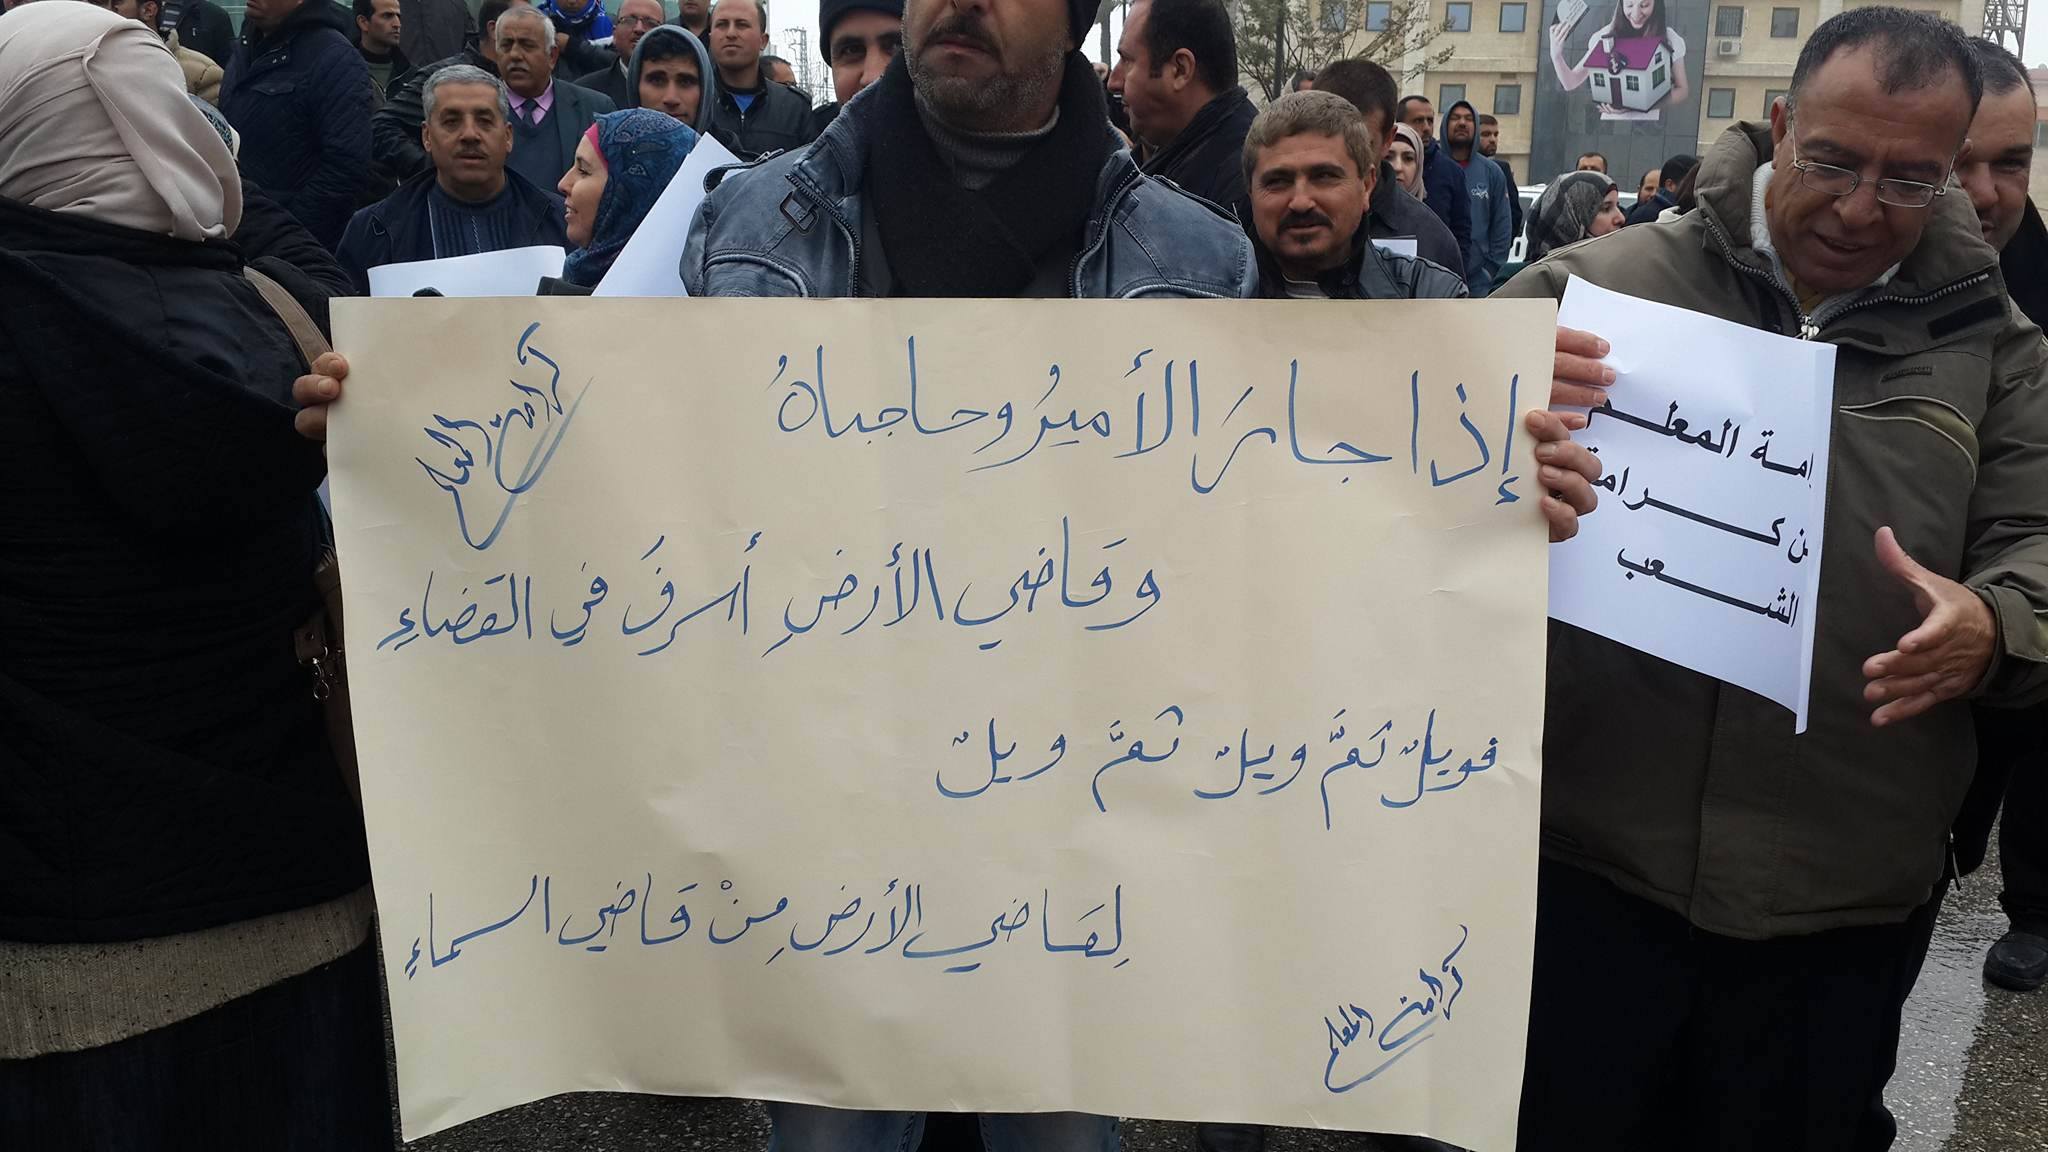 إذا جارَ الأميرُ وحاجباهُ
وقَاضي الأرضِ أسرفَ في القَضاءِ
فويلٌ ثمَّ ويلٌ ثمَّ ويلٌ
لِقَاضي الأرضِ مِنْ قَاضي السماءِ
كرامة المعلم
كرامة المعلم
امة المعلم
من كرامة
الشعب